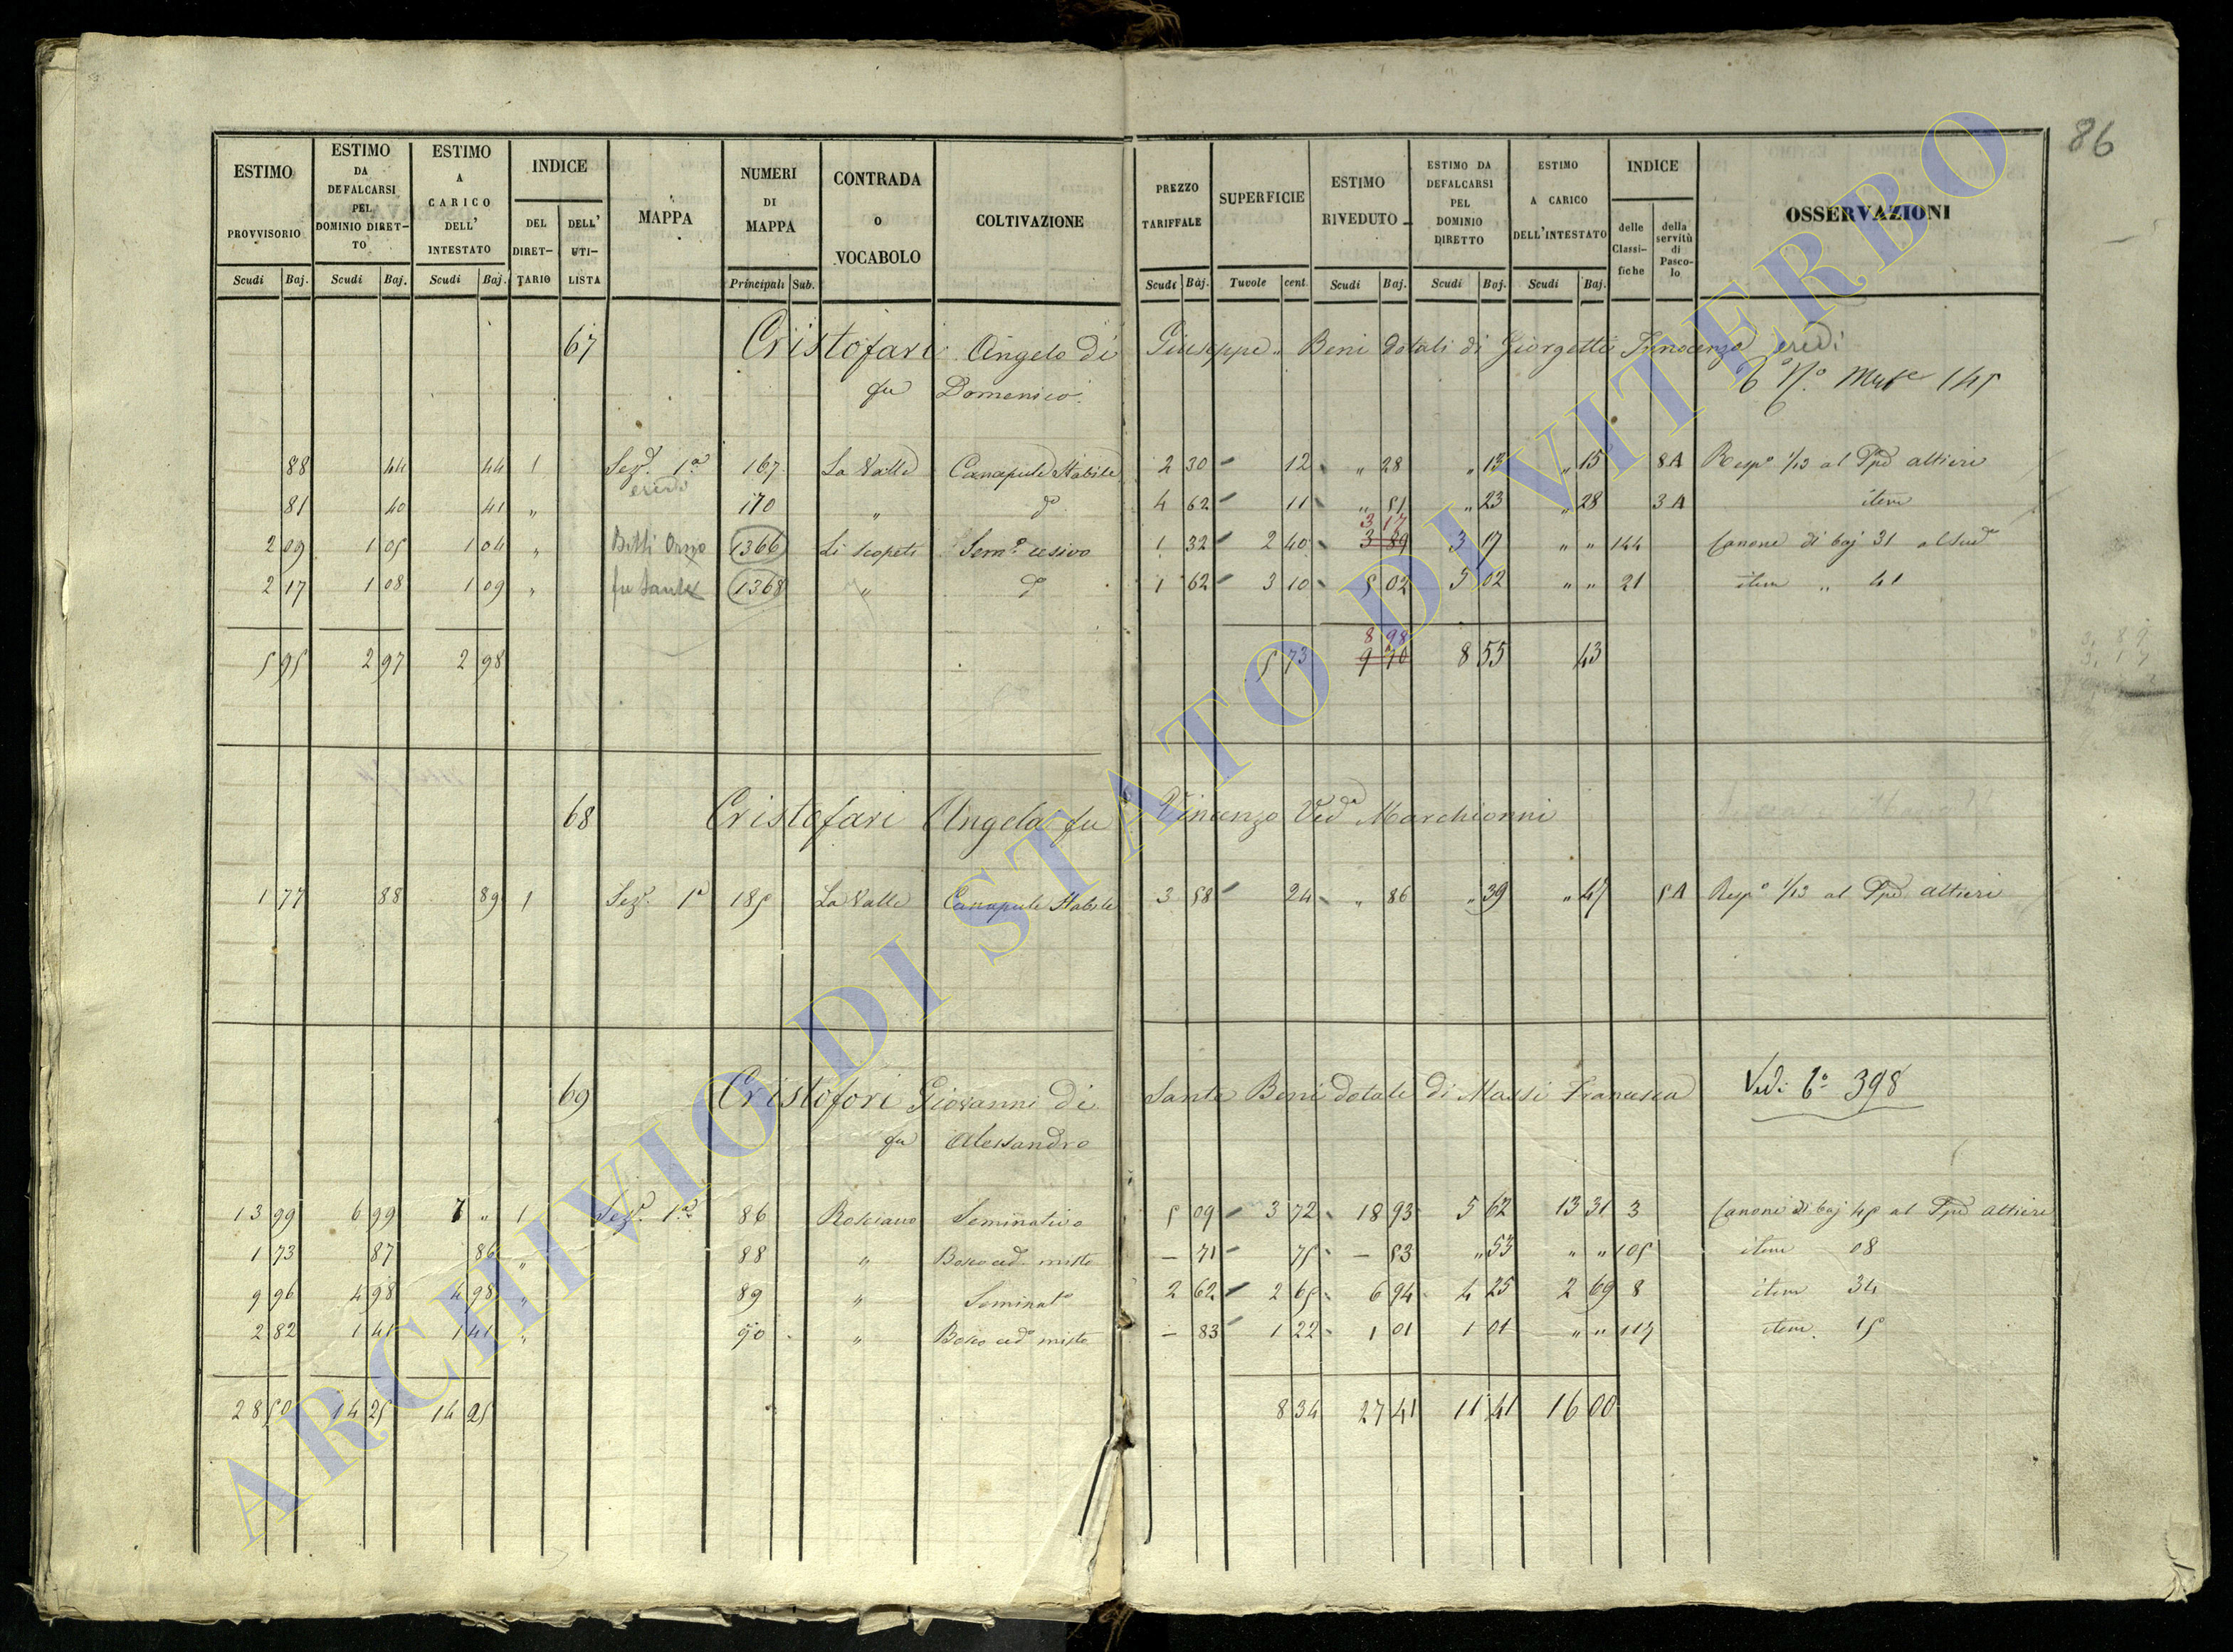 86
ESTIMO PROVVISORIO | ESTIMO DA DEFALCARSI PEL DOMINIO DIRETTO | ESTIMO A CARICO DELL' INTESTATO | INDICE DEL DIRETTARIO | DELL' UTILISTA | MAPPA | NUMERI DI MAPPA | CONTRADA O VOCABOLO | COLTIVAZIONE | PREZZO TARIFFALE | SUPERFICIE | ESTIMO RIVEDUTO | ESTIMO DA DEFALCARSI PEL DOMINIO DIRETTO | ESTIMO A CARICO DELL'INTESTATO | INDICE delle Classifiche | della servitù di Pascolo | OSSERVAZIONI
Scudi Baj. | Scudi Baj. | Scudi Baj. | Principali Sub. | Scudi Baj. | Tavole cent. | Scudi Baj. | Scudi Baj. | Scudi Baj.
67 Cristofari Angelo di Giuseppe „ Beni dotali di Giorgetti Innocenza eredi
fu Domenico
145
88 | 44 | 44 | 1 | Sez. 1a | 167 | La Valle | Canapule Stabile | 2 30 | 12 | „ 28 | „ 13 | „ 15 | 8A | Resp° 1/13 al Ppe Altieri
eredi
81 | 40 | 41 | „ | 170 | „ | d° | 4 62 | 11 | „ 51 | „ 23 | „ 28 | 3A | item
3 17
2 09 | 1 05 | 1 04 | „ | 1366 | Li Scopeti | Sem° cesivo | 1 32 | 2 40 | 3 89 | 3 17 | „ „ | 144 | Canone di baj 31 al sud°
2 17 | 1 08 | 1 09 | „ | fu Sante | 1368 | „ | d° | 1 62 | 3 10 | 5 02 | 5 02 | „ „ | 21 | item „ 41
8 98
5 95 | 2 97 | 2 98 | 5 73 | 9 70 | 8 55 | 43
68 Cristofari Angela fu Vincenzo Ved° Marchionni
1 77 | 88 | 89 | 1 | Sez. 1a | 185 | La Valle | Canapule Stabile | 3 58 | 24 | „ 86 | „ 39 | „ 47 | 5A | Resp° 1/13 al Ppe Altieri
69 Cristofori Giovanni di Sante Beni dotali di Massi Francesca Vedi 398
fu Alessandro
13 99 | 6 99 | 7 „ | 1 | Sez. 1a | 86 | Rosciano | Seminativo | 5 09 | 3 72 | 18 93 | 5 62 | 13 31 | 3 | Canone di baj 45 al Ppe Altieri
1 73 | 87 | 86 | „ | 88 | „ | Bosco ced. misto | – 71 | 75 | – 53 | „ 53 | „ „ | 105 | item 08
9 96 | 4 98 | 4 98 | „ | 89 | „ | Seminat° | 2 62 | 2 65 | 6 94 | 4 25 | 2 69 | 8 | item 34
2 82 | 1 41 | 1 41 | „ | 90 | „ | Bosco ced° misto | – 83 | 1 22 | 1 01 | 1 01 | „ „ | 117 | item 15
28 50 | 14 25 | 14 25 | 8 34 | 27 41 | 11 41 | 16 00
ARCHIVIO DI STATO DI VITERBO